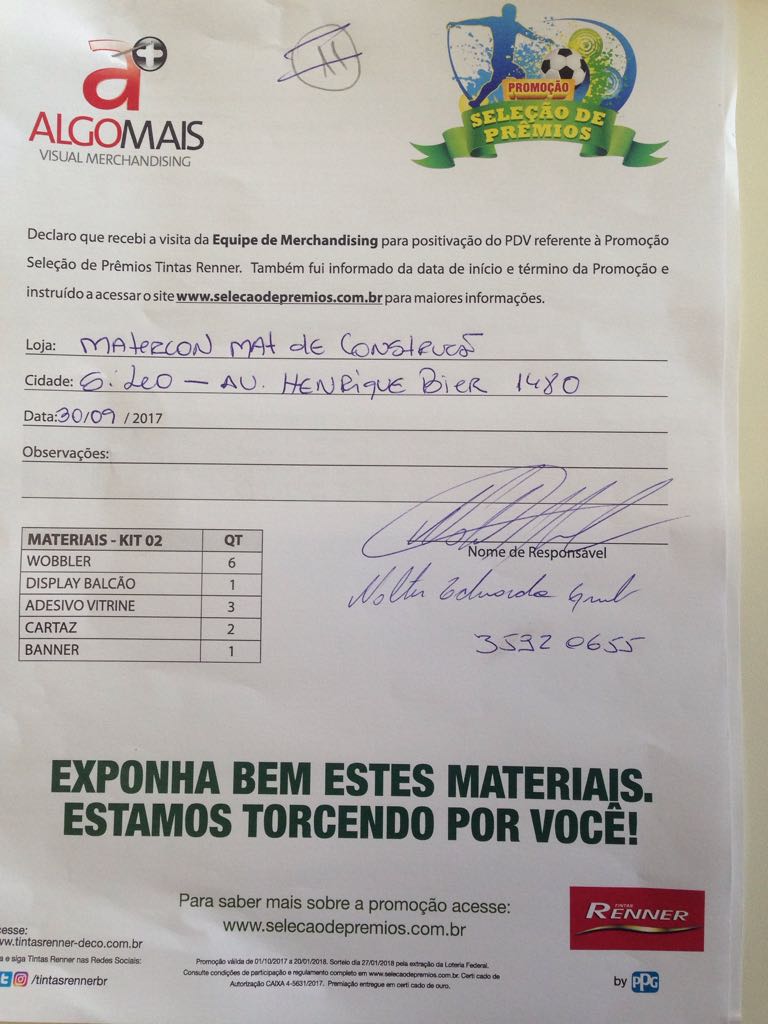 11
a+
ALGOMAIS
VISUAL MERCHANDISING
PROMOÇÃO
SELEÇÃO DE
PRÊMIOS
Declaro que recebi a visita da Equipe de Merchandising para positivação do PDV referente à Promoção
Seleção de Prêmios Tintas Renner. Também fui informado da data de início e término da Promoção e
instruído a acessar o site www.selecaodepremios.com.br para maiores informações.
Loja: MATERCON MAT DE CONSTRUCÃ
Cidade: S. LEO — AV. HENRIQUE BIER 1480
Data: 30/09 / 2017
Observações:
Nome de Responsável
Eduardo
3592 0655
MATERIAIS - KIT 02 QT
WOBBLER 6
DISPLAY BALCÃO 1
ADESIVO VITRINE 3
CARTAZ 2
BANNER 1
EXPONHA BEM ESTES MATERIAIS.
ESTAMOS TORCENDO POR VOCÊ!
Para saber mais sobre a promoção acesse:
www.selecaodepremios.com.br
TINTAS
RENNER
by PPG
cesse:
ww.tintasrenner-deco.com.br
a e siga Tintas Renner nas Redes Sociais:
/tintasrennerbr
Promoção válida de 01/10/2017 a 20/01/2018. Sorteio dia 27/01/2018 pela extração da Loteria Federal.
Consulte condições de participação e regulamento completo em www.selecaodepremios.com.br. Certi cado de
Autorização CAIXA 4-5631/2017. Premiação entregue em certi cado de ouro.